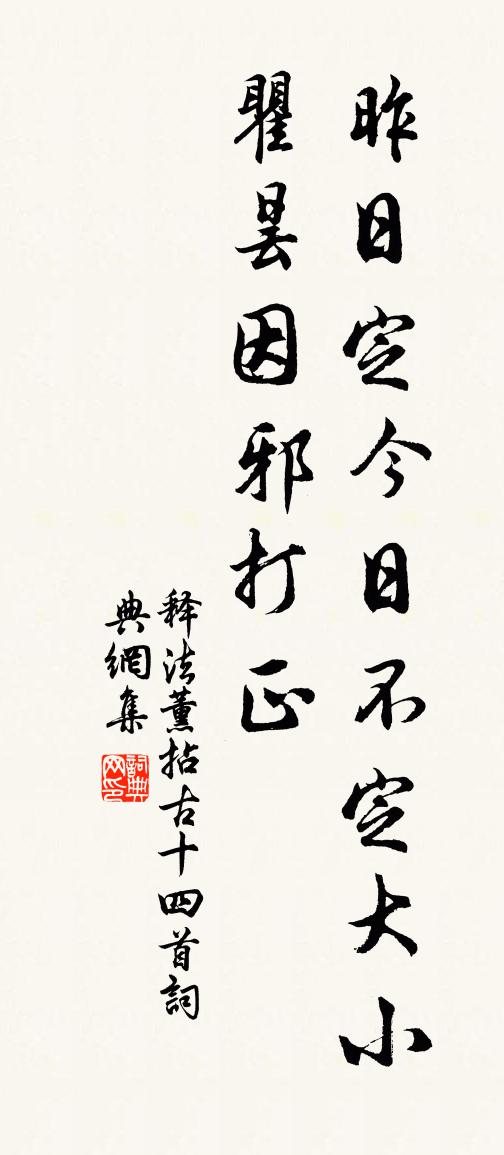 昨日定今日不定大小
瞿昙因邪打正
释法薰拈古十四首詞
典網集
詞典网印